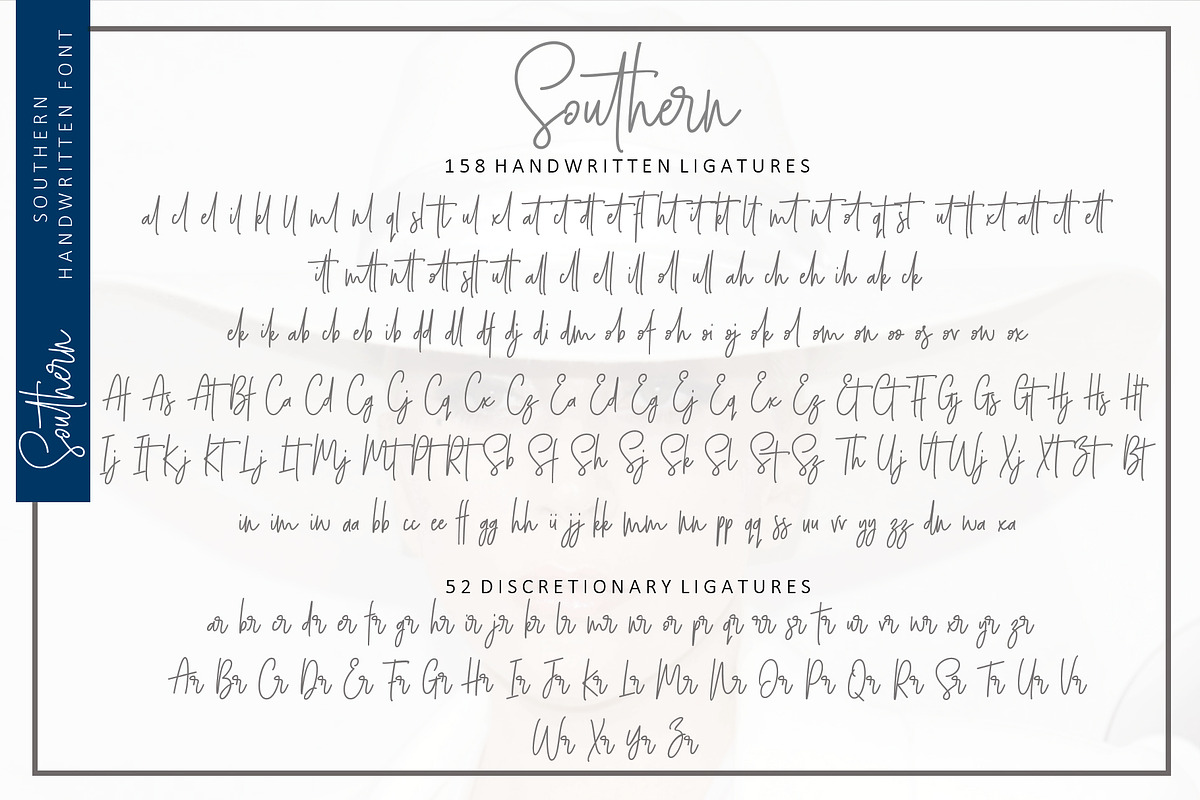 SOUTHERN
HANDWRITTEN FONT
Southern
Southern
158 HANDWRITTEN LIGATURES
al cl el il kl ll ml nl ql sl tt ul xl at ct dt et ft ht it kt lt mt nt ot qt st ut tt xt att ctt ett
itt mtt ntt ott stt utt all cll ell ill oll ull ah ch eh ih ak ck
ek ik ab cb eb ib dd dl df dj di dm ob of oh oi oj ok ol om on oo os ov ow ox
At As At Bt Ca Cd Cg Cj Cq Cx Cz Ea Ed Eg Ej Eq Ex Ez Et Ct Ft Gj Gs Gt Hj Hs Ht
Ij It Kj Kt Lj Lt Mj Mt Pt Rt Sb Sf Sh Sj Sk Sl St Sz Th Uj Vt Wj Xj Xt Zt Bt
in im iw aa bb cc ee ff gg hh ii jj kk mm nn pp qq ss uu vv yy zz dn wa xa
52 DISCRETIONARY LIGATURES
ar br cr dr er fr gr hr ir jr kr lr mr nr or pr qr rr sr tr ur vr wr xr yr zr
Ar Br Cr Dr Er Fr Gr Hr Ir Jr Kr Lr Mr Nr Or Pr Qr Rr Sr Tr Ur Vr
Wr Xr Yr Zr